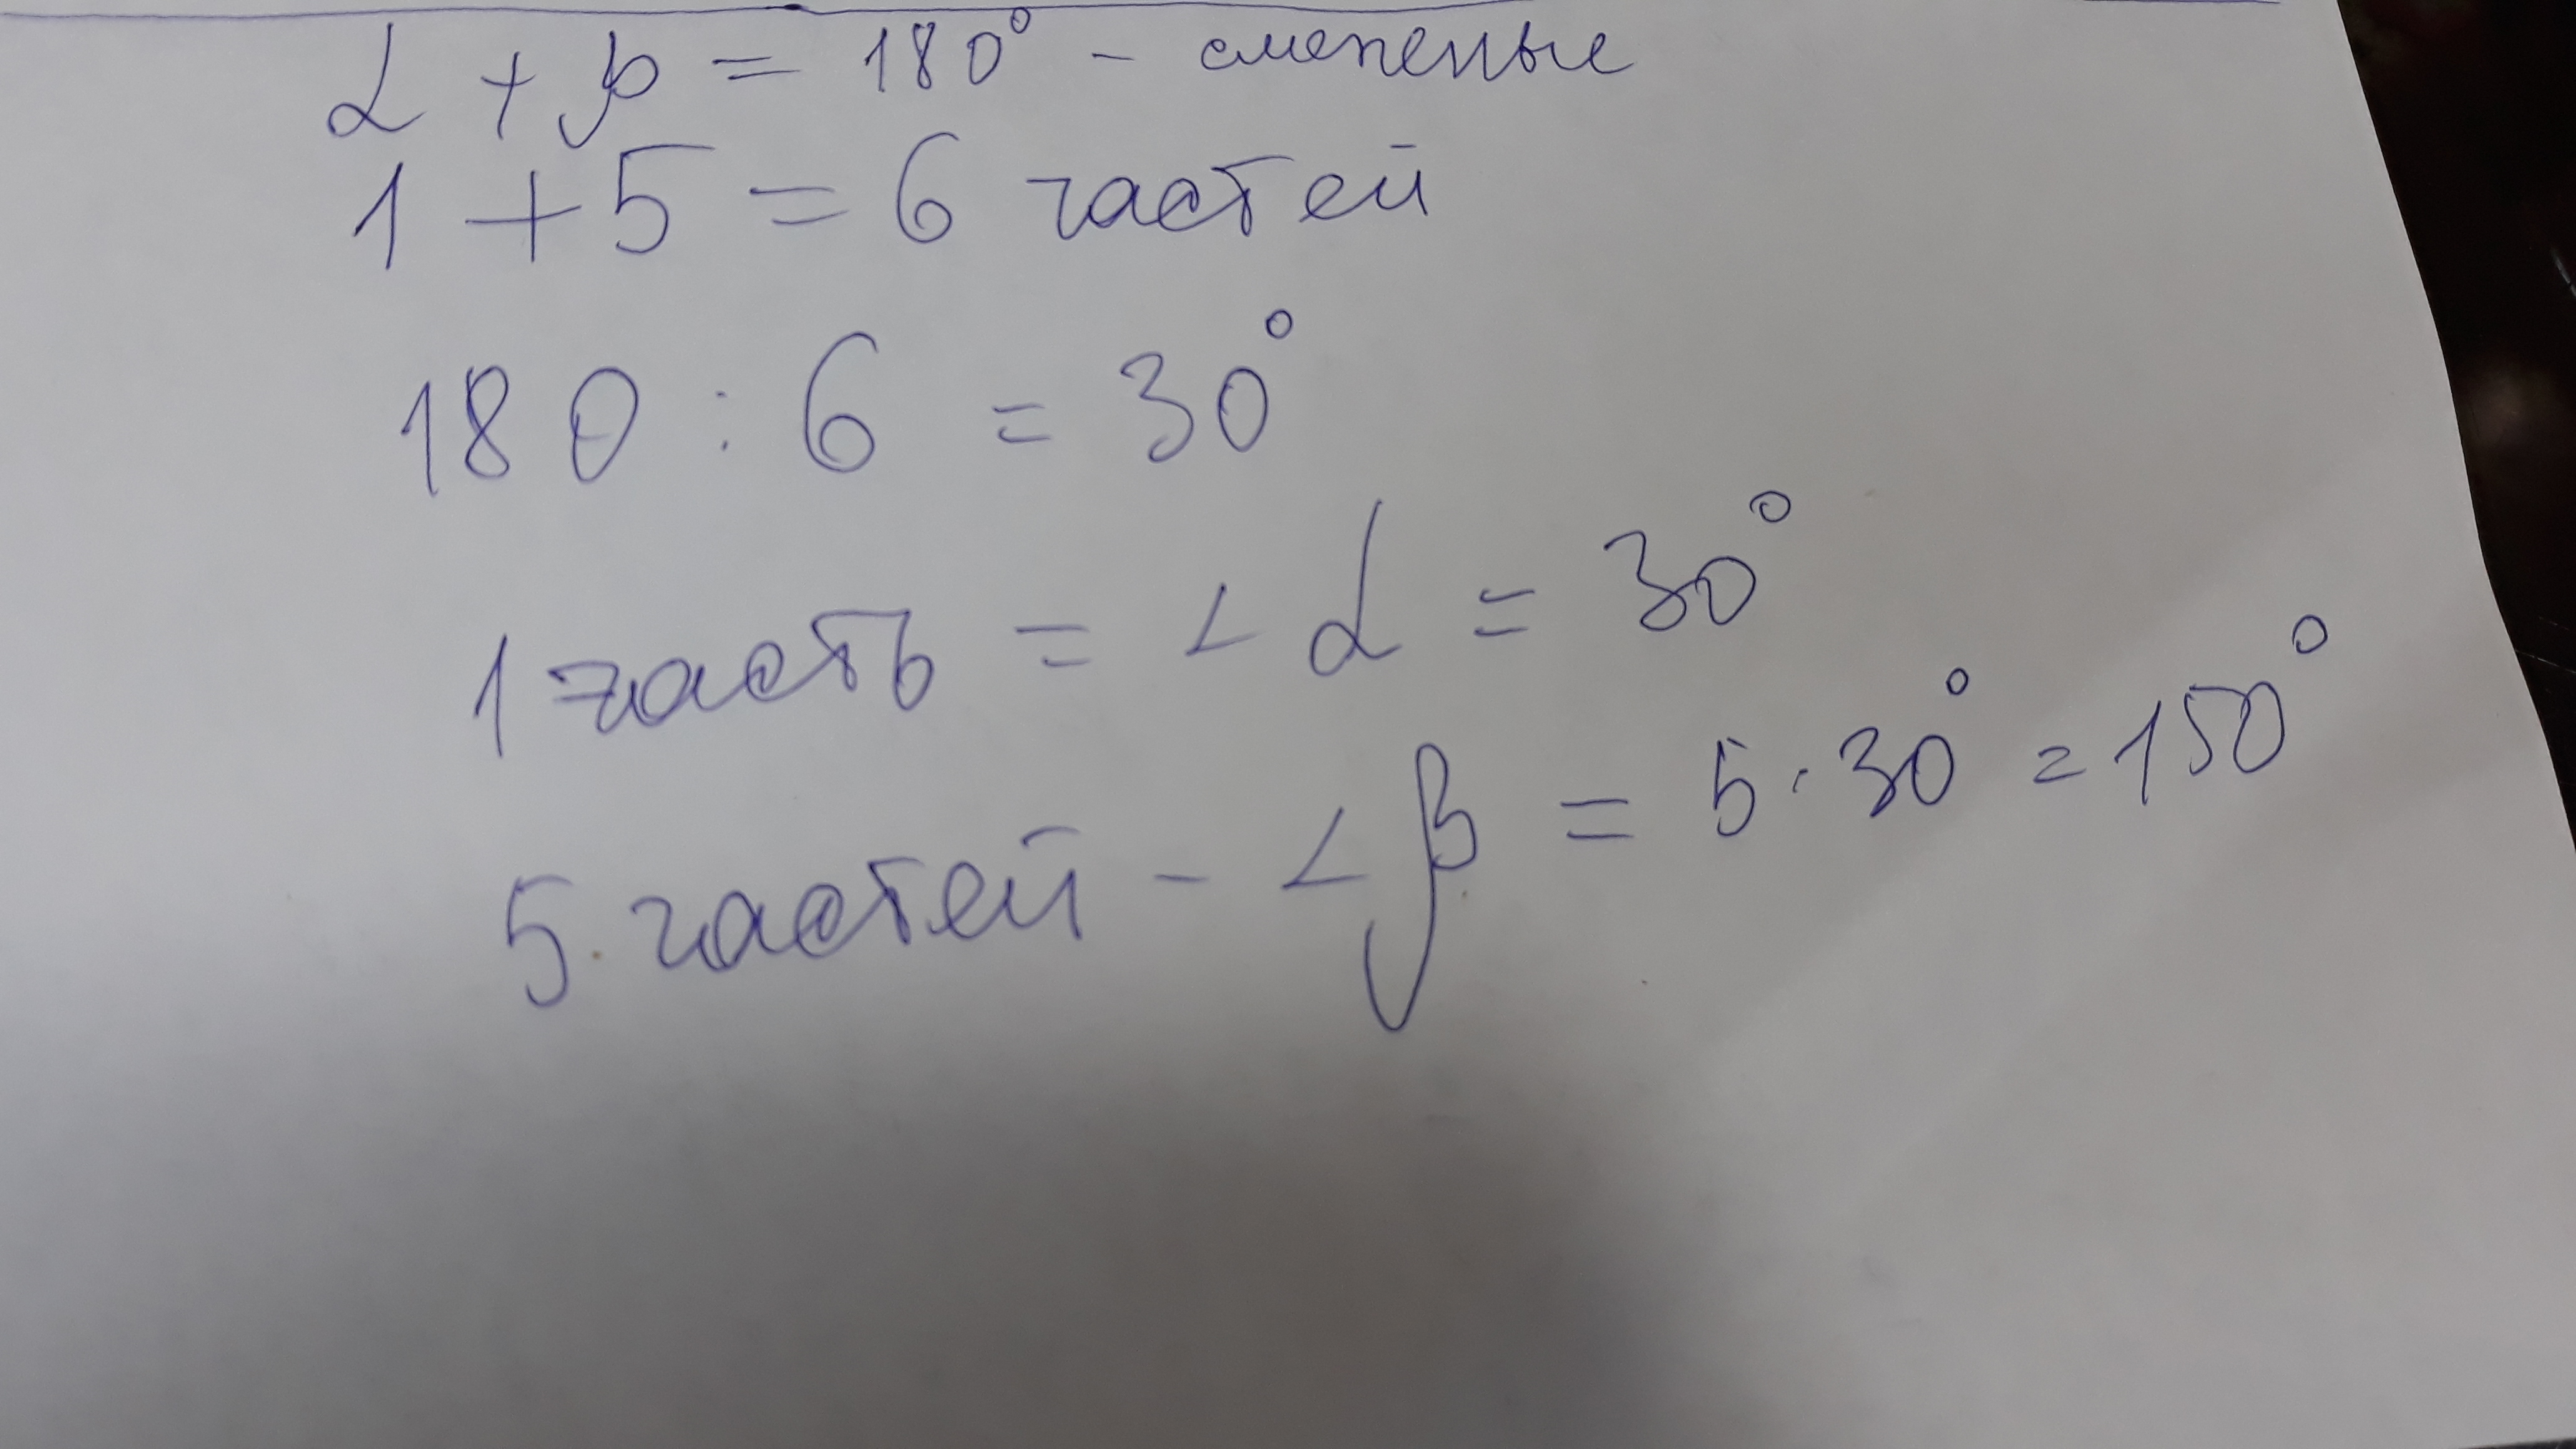 α + β = 180° - смеженые
1 + 5 = 6 частей
180 : 6 = 30°
1 часть = ∠ α = 30°
5 частей - ∠ β = 5 · 30° = 150°